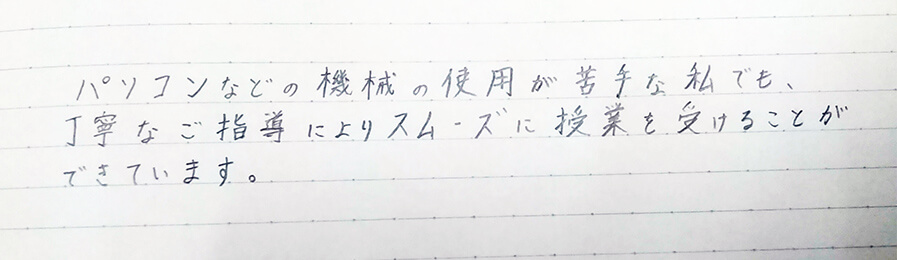 パソコンなどの機械の使用が苦手な私でも、
丁寧なご指導によりスムーズに授業を受けることが
できています。